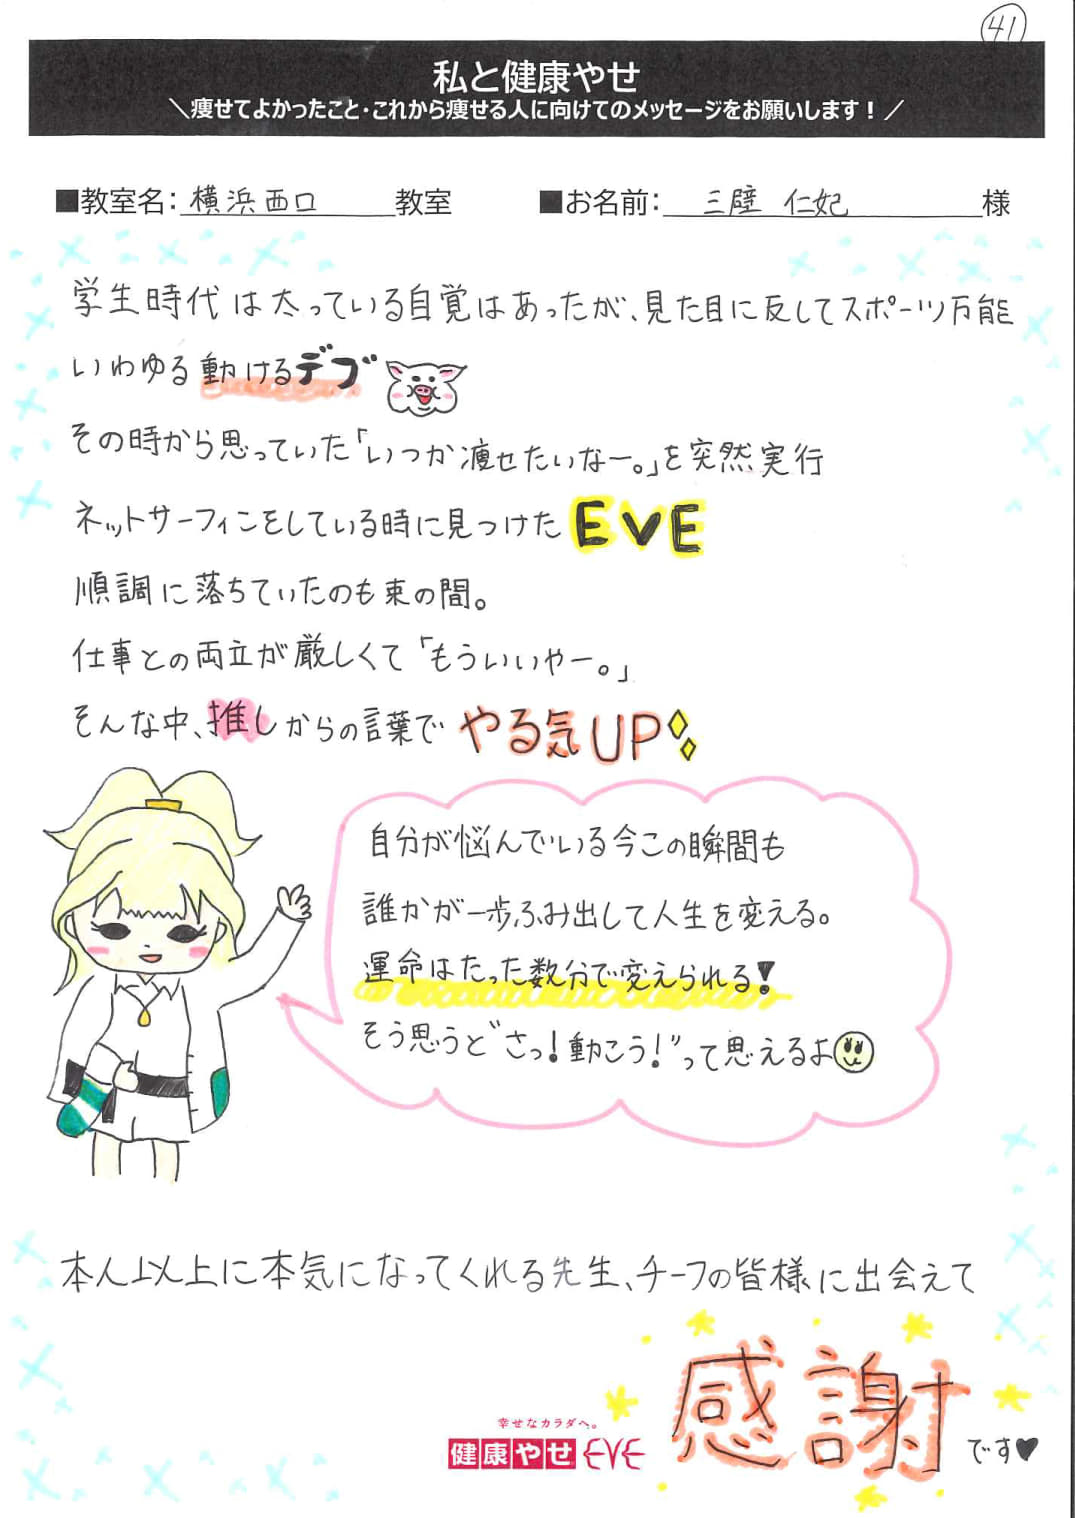 41
私と健康やせ
＼痩せてよかったこと・これから痩せる人に向けてのメッセージをお願いします！／
■教室名：横浜西口教室 ■お名前：三壁 仁妃様
学生時代は太っている自覚はあったが、見た目に反してスポーツ万能
いわゆる動けるデブ
その時から思っていた「いつか痩せたいなー。」を突然実行
ネットサーフィンをしている時に見つけたEVE
順調に落ちていたのも束の間。
仕事との両立が厳しくて「もういいやー。」
そんな中、推しからの言葉でやる気UP
自分が悩んでいる今この瞬間も
誰かが一歩ふみ出して人生を変える。
運命はたった数分で変えられる！
そう思うと“さっ！動こう！”って思えるよ
本人以上に本気になってくれる先生、チーフの皆様に出会えて
感謝です♥
幸せなカラダへ。
健康やせEVE